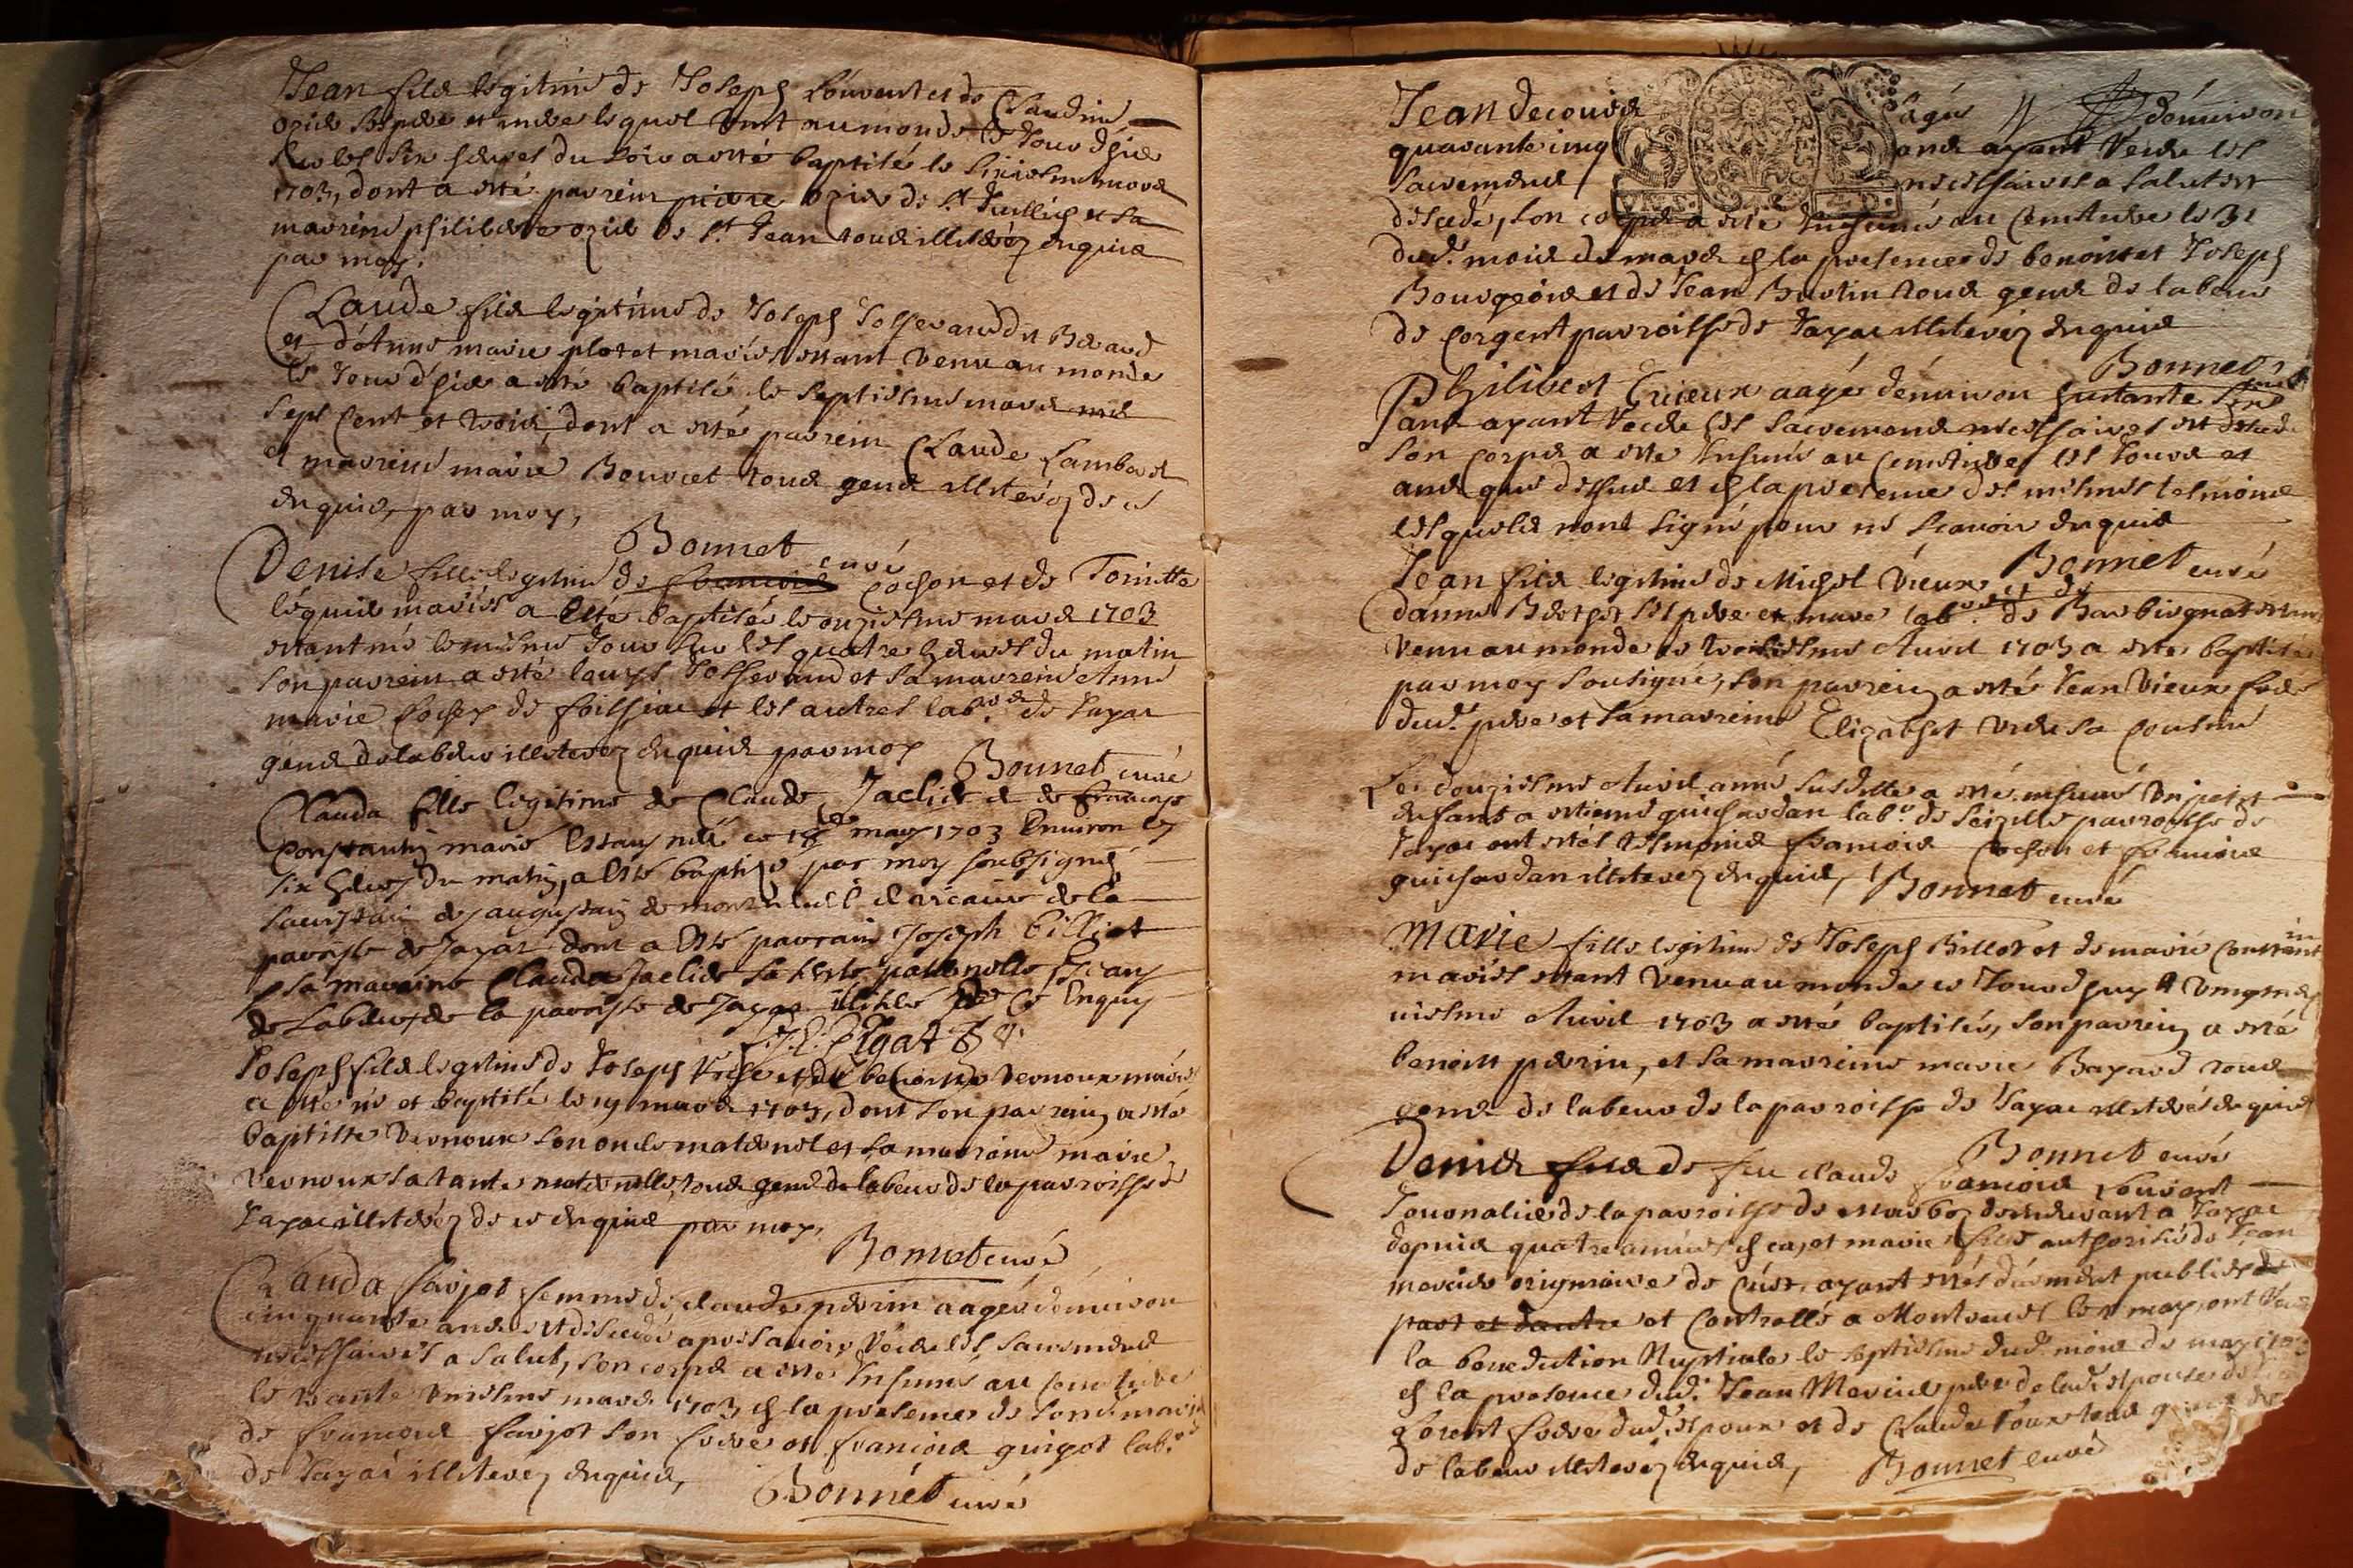 Jean fils legitime de Joseph Louvent et de Claudine
ozier ses pere et mere lequel vint au monde ce jourdhier
sur les six heures du soir a esté baptisé le sixiesme mars
1703, dont a esté parrein pierre ozier de St et sa
marreine philiberte ozier de St Jean tous illiterez enquis
par moy.
Claude fils legitime de Joseph Josserand dit Berard
et danne marie plot et mariés estant venu au monde
le jourdhier a esté baptisé le septiesme mars mil
sept cent et trois, dont a esté parrein Claude Lambert
et marreine marie Bouvet tous gens illiterez de ce
enquis, par moy,
Bonnet curé
Denise fille legitime de francois cochon et de Toinette
mariés a esté baptisée le onziesme mars 1703
estant née le mesme jour sur les quatre heures du matin
son parrein a esté louys Josserand et sa marreine Anne
marie cochon de foissiac et les autres labrs de Jayac
gens de labeur illiterez enquis par moy
Bonnet curé
Clauda fille legitime de Claude Jaclier et de francoise
Constantin mariés estant née ce 18 may 1703 environ les
six heures du matin, a esté baptisée par moy soubsigné
sacristain des augustins de montrevel et vicaire de la
paroisse de Jayat dont a esté parrain Joseph billiot
et sa maraine Clauda Jaclier sa tante paternelle gens
de labeur de la paroisse de Jayat illiterés de ce enquis
Joseph fils legitime de Joseph et de benoiste vernoux mariés
a esté né et baptisé le 19 mars 1703, dont son parrein a esté
baptiste vernoux son oncle maternel et sa marreine marie
vernoux sa tante maternelle, tous gens de labeur de la parroisse de
Jayac illiterez de ce enquis par moy,
Bonnet curé
Clauda favjot femme de claude perrin aagée denviron
cinquante ans est decedée apres avoir receu les sacremens
necessaires a salut, son corps a esté inhumé au cemetiere
le trante uniesme mars 1703 en la presence de sond. mary
de francois favjot son frere et francois guigot labr.
de Jayac illiterez enquis,
Bonnet curé
Jean decours agé denviron
quarante cinq ans ayant receu les
sacremens necessaires a salut est
decedé, son corps a esté inhumé au cemetiere le 31
dud. mois de mars en la presence de benoist et Joseph
Bourgeois et de Jean Bertin tous gens de labeur
de corgent parroisse de Jayac illiterez enquis
Bonnet curé
Philibert aagé denviron huitante six
ans ayant receu les sacremens necessaires est decedé
son corps a esté inhumé au cemetiere les jours et
ans que dessus et en la presence des mesmes tesmoins
lesquels nont signé pour ne scavoir enquis
Bonnet curé
Jean fils legitime de Michel Vieux et de
danne Berthet ses pere et mere labrs. de Barbisgnat estant
venu au monde le troisiesme Avril 1703 a esté baptisé
par moy sousigné, son parrein a esté Jean Vieux frere
dud. pere et sa marreine Elizabhet sa cousine
Le douziesme Avril année susditte a esté inhumé un petit
enfant a estienne guichardan labr. de parroisse de
Jayac ont estés tesmoins francois cochon et francois
guichardan illiterez enquis, Bonnet curé
Marie fille legitime de Joseph Billot et de marie Constantin
mariés estant venu au monde ce jourdhuy vingt neu
viesme Avril 1703 a esté baptisée, son parrein a esté
benoist perrin, et sa marreine marie Bayard tous
gens de labeur de la parroisse de Jayac illiterés enquis
Bonnet curé
Denis fils de feu claude francois Louvent
Journalier de la parroisse de Marboz demeurant a Jayac
depuis quatre années en ca, et marie fille authorisée de Jean
mercier originaire de Cuet, ayant estés duement publiés de
part et dautre et controllé a Montrevel le may, ont receu
la benediction Nuptiale le septiesme dud. mois de may 1703
en la presence dud. Jean Mercier pere de lad. espouse de
Lovent frere dud. espoux et de Claude tous gens
de labeur illiterez enquis, Bonnet curé